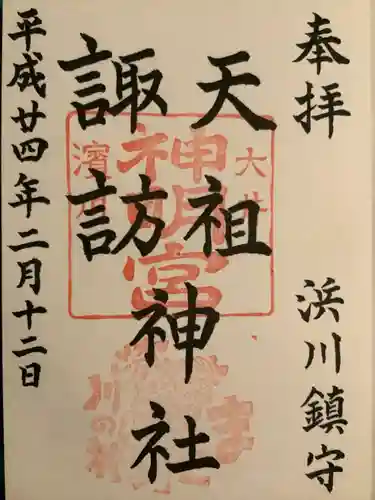 奉拝
浜川鎮守
天祖
諏訪
神社
平成廿四年二月十二日
神明宮
大井